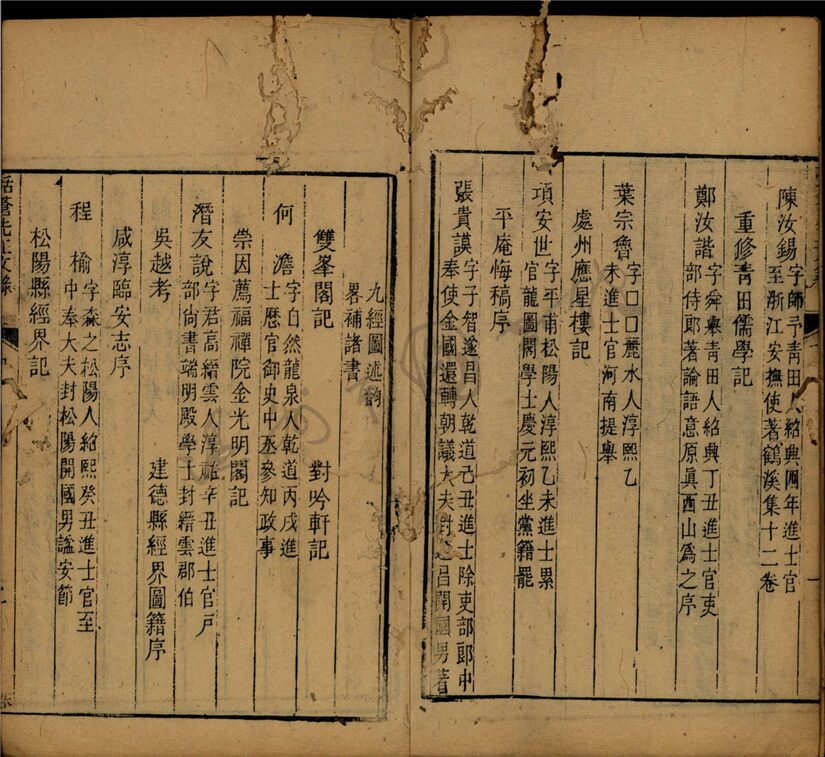 陳汝錫字師予青田人紹興四年進士官
至浙江安撫使著鶴溪集十二卷
重修青田儒學記
鄭汝諧字舜舉青田人紹興丁丑進士官吏
部侍郎著論語意原眞西山爲之序
葉宗魯字口口麗水人淳熙乙
未進士官河南提舉
處州應星樓記
項安世字平甫松陽人淳熙乙未進士累
官龍圖閣學士慶元初坐黨籍罷
平庵悔稿序
張貴謨字子智遂昌人乾道己丑進士除吏部郎中
奉使金國還轉朝議大夫封昌開國男著
九經圖述韵
畧補諸書
雙峯閣記 對吟軒記
何澹字自然龍泉人乾道丙戌進
士歷官御史中丞參知政事
崇因薦福禪院金光明閣記
潛友說字君高縉雲人淳祐辛丑進士官戶
部尚書端明殿學士封縉雲郡伯
吳越考 建德縣經界圖籍序
咸淳臨安志序
程榆字森之松陽人紹熙癸丑進士官至
中奉大夫封松陽開國男謚安節
松陽縣經界記
括蒼先正文錄